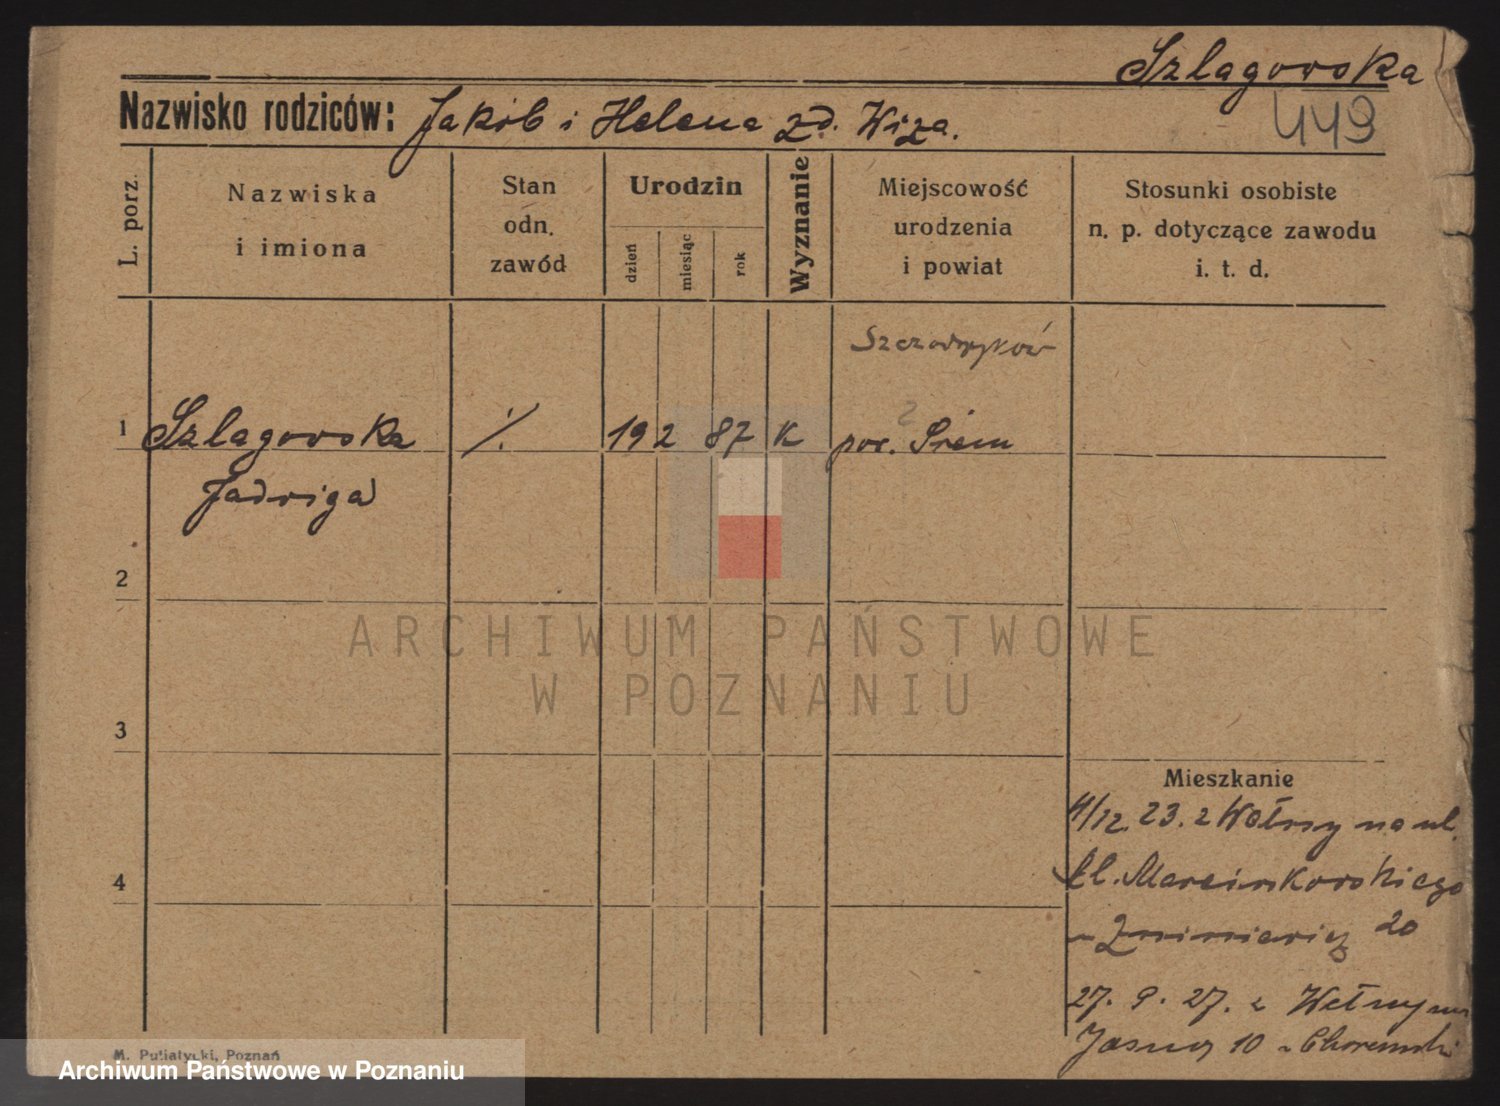 Szlagowska
449
Nazwisko rodziców: Jakób i Helena zd. Wiza.
L. porz.
Nazwiska
i imiona
Stan
odn.
zawód
Urodzin
dzień
miesiąc
rok
Wyznanie
Miejscowość
urodzenia
i powiat
Stosunki osobiste
n. p. dotyczące zawodu
i. t. d.
1 Szlagowska
Jadwiga
·/. 19 2 87 K
pow. Śrem
2
3
4
Mieszkanie
4/12. 23. z na ul.
Marcinkowskiego
20
27. 9. 27. z
Jasną 10
M. Putiatycki, Poznań
ARCHIWUM PAŃSTWOWE
W POZNANIU
Archiwum Państwowe w Poznaniu